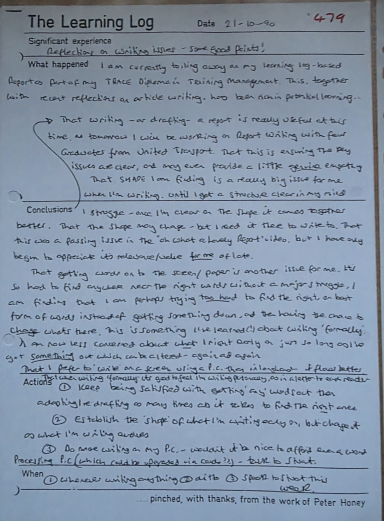 The Learning Log Date 21-10-90 *479
Significant experience
Reflections on writing issues - some good points!
What happened I am currently toiling away on my learning log-based
Report as part of my TRACE Diploma in Training Management This, together
with recent reflections on article writing, has been rich in potential learning...
That writing - or drafting - a report is really useful at this
time, as tomorrow I will be working on Report Writing with few
Graduates from United Transport. That this is ensuring the key
issues are clear, and may even provide a little genuine empathy
That SHAPE I am finding is a really big issue for me
when I'm writing. Until I get a structure clear in my mind
Conclusions I struggle - once I'm clear on the shape it comes together
better. That the shape may change - but I need it there to write to. That
this was a passing issue in the "Oh what a lovely Report" video, but I have only
begun to appreciate its relevance/value for me of late.
That getting words on to the screen/paper is another issue for me. It's
so hard to find anywhere near the right words without a major struggle. I
am finding that I am perhaps trying too hard to find the right or best
form of words instead of getting something down, and then having the chance to
change what's there. This is something I've learned(?) about writing 'formally'.
I am now less concerned about what I write early on just so long as I've
got something out which can be altered - again and again
That I prefer to write on a screen using a P.C. than in longhand - it flows better
Actions ① Keep being satisfied with getting any word out then
adapting/re-drafting as many times as it takes to find the right ones
② Establish the shape of what I'm writing early on, but change it
as what I'm writing evolves
③ Do more writing on my P.C. - wouldn't it be nice to afford a new Word
Processing P.C. (which could be upgraded via cards!) - talk to Stuart.
When ① whenever writing anything ② ditto ③ speak to Stuart this
week.
...pinched, with thanks, from the work of Peter Honey